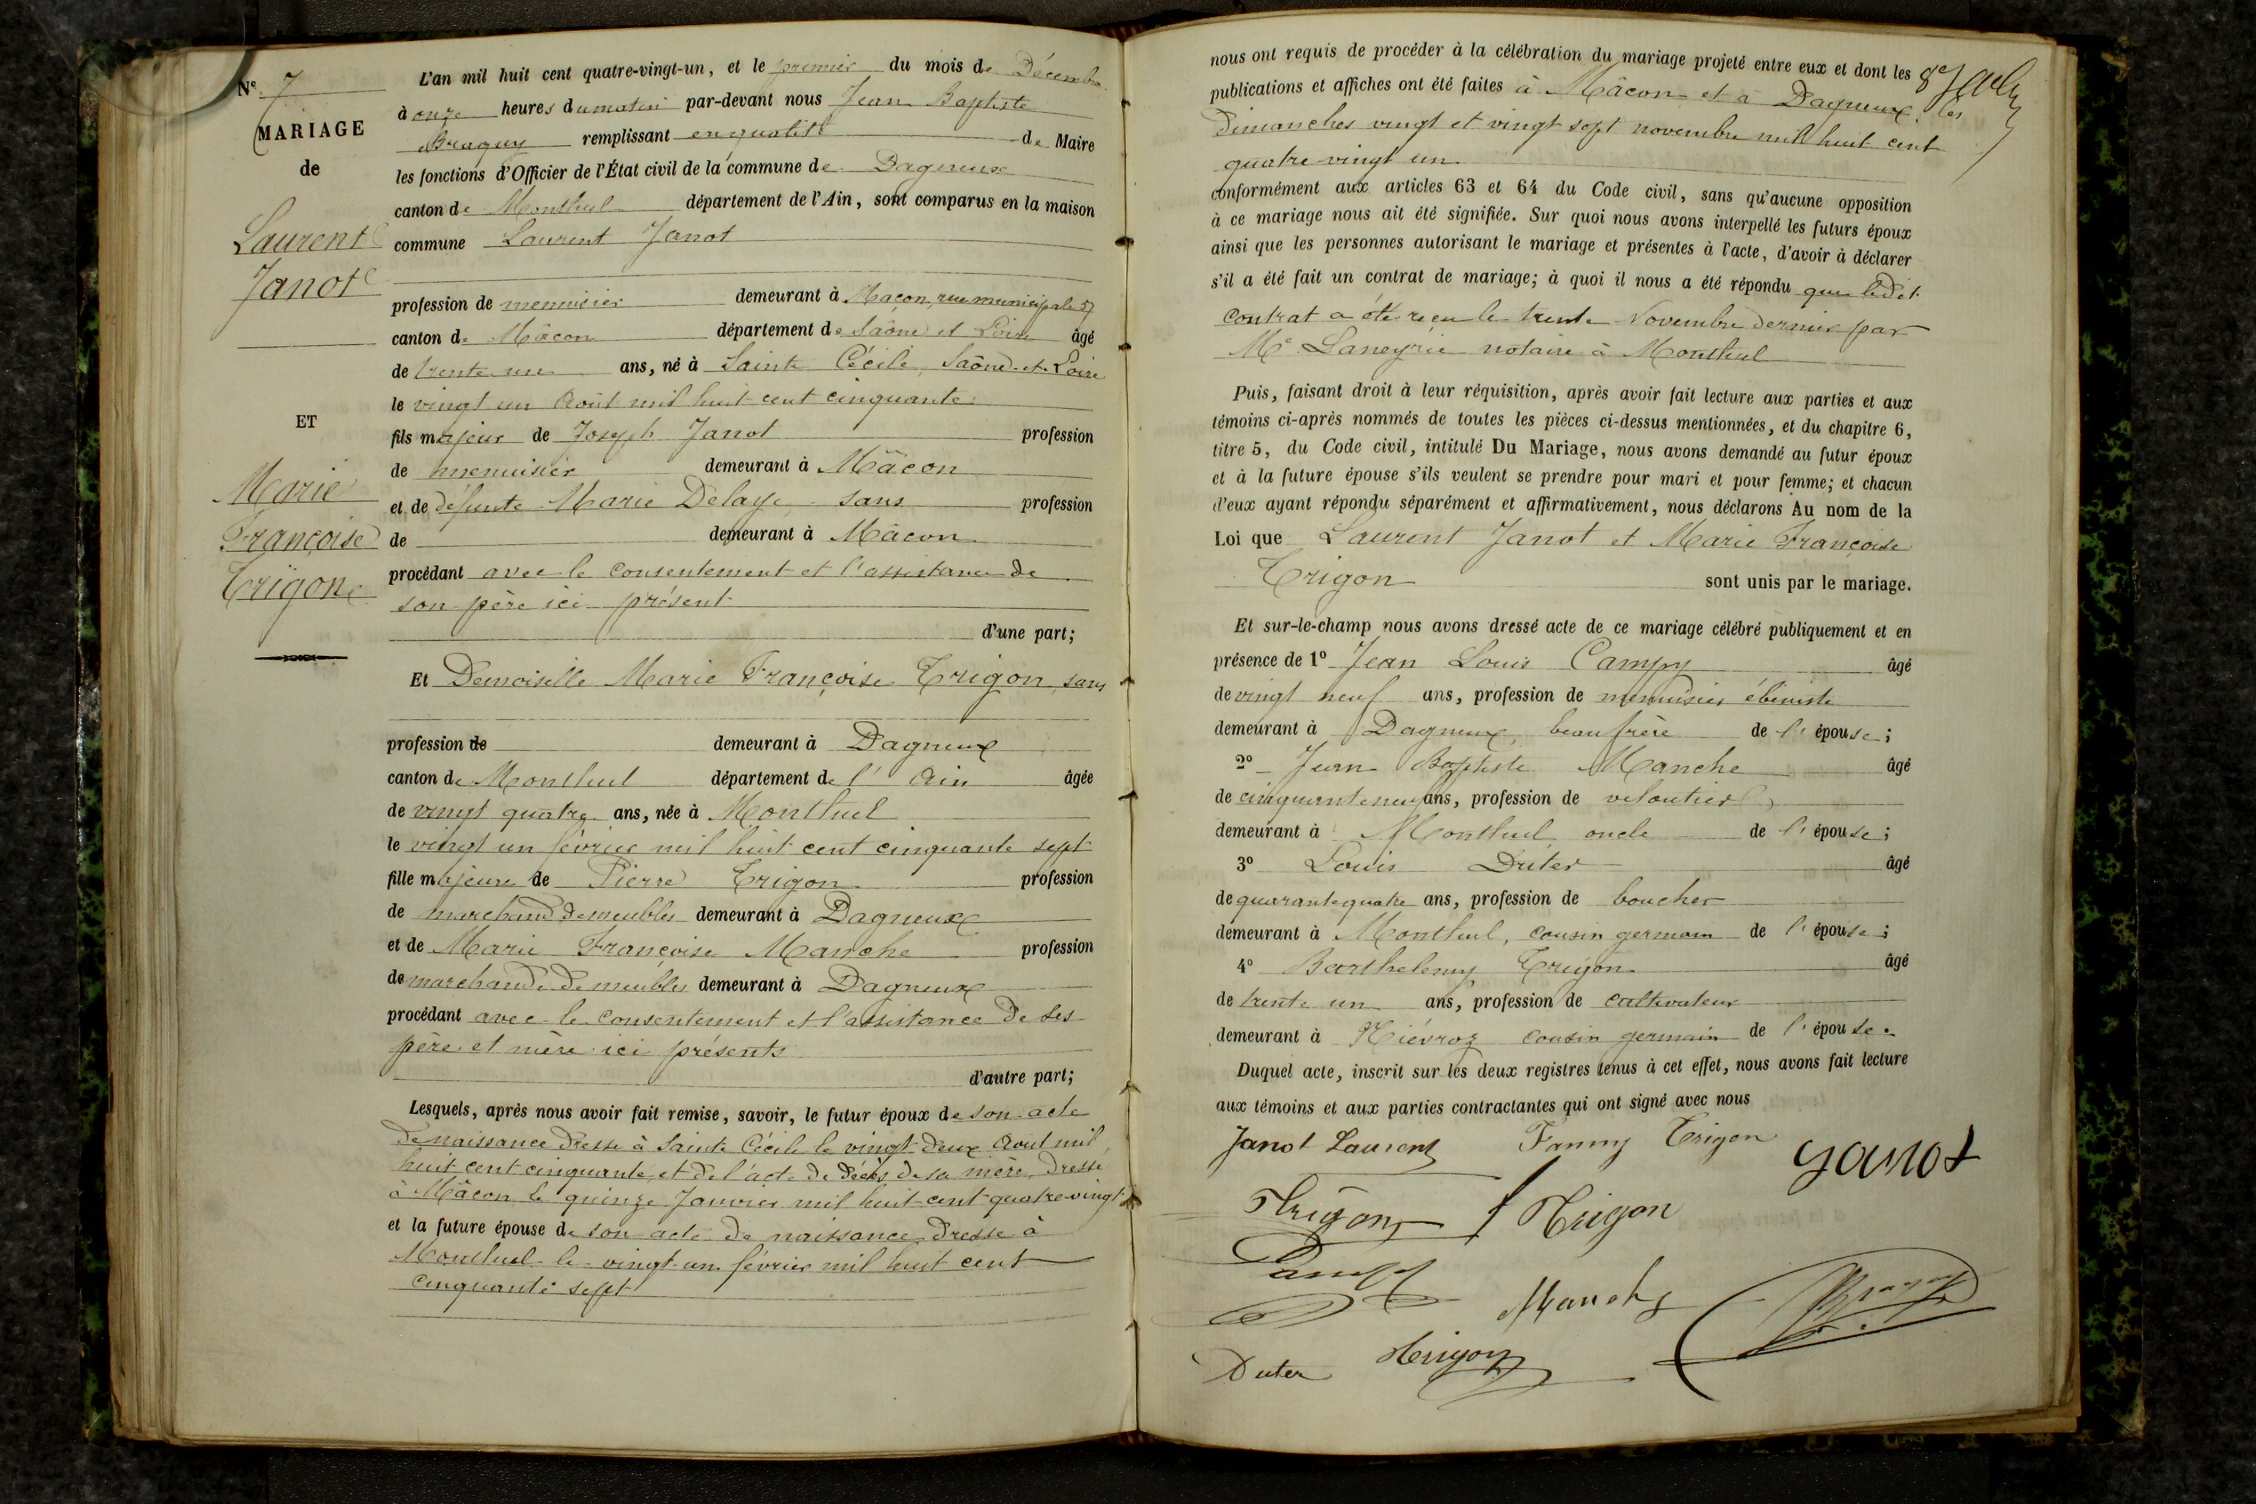 N° 7
MARIAGE
de
Laurent
Janot
ET
Marie
Françoise
Trigon
L'an mil huit cent quatre-vingt-un, et le premier du mois de Décembre
à onze heures du matin par-devant nous Jean Baptiste
Braguy remplissant en qualité de Maire
les fonctions d'Officier de l'État civil de la commune de Dagneux
canton de Montluel département de l'Ain, sont comparus en la maison
commune Laurent Janot
profession de menuisier demeurant à Macon, rue municipale 57
canton de Mâcon département de Saône et Loire âgé
de trente un ans, né à Sainte Cécile, Saône-et-Loire
le vingt un Août mil huit cent cinquante
fils majeur de Joseph Janot profession
de menuisier demeurant à Mâcon
et de défunte Marie Delaye sans profession
de demeurant à Mâcon
procédant avec le consentement et l'assistance de
son père ici présent
d'une part;
Et Demoiselle Marie Françoise Trigon, sans
profession de demeurant à Dagneux
canton de Montluel département de l'Ain âgée
de vingt quatre ans, née à Montluel
le vingt un février mil huit cent cinquante sept
fille majeure de Pierre Trigon profession
de marchand de meubles demeurant à Dagneux
et de Marie Françoise Manche profession
de marchande de meubles demeurant à Dagneux
procédant avec le consentement et l'assistance de ses
père et mère ici présents
d'autre part;
Lesquels, après nous avoir fait remise, savoir, le futur époux de son acte
de naissance dressé à Sainte Cécile le vingt deux Août mil
huit cent cinquante, et de l'acte de décès de sa mère, dressé
à Mâcon le quinze Janvier mil huit cent quatre vingt
et la future épouse de son acte de naissance dressé à
Montluel le vingt un février mil huit cent
cinquante sept
nous ont requis de procéder à la célébration du mariage projeté entre eux et dont les
publications et affiches ont été faites à Mâcon et à Dagneux, les
Dimanches vingt et vingt sept novembre mil huit cent
quatre vingt un
conformément aux articles 63 et 64 du Code civil, sans qu'aucune opposition
à ce mariage nous ait été signifiée. Sur quoi nous avons interpellé les futurs époux
ainsi que les personnes autorisant le mariage et présentes à l'acte, d'avoir à déclarer
s'il a été fait un contrat de mariage; à quoi il nous a été répondu que ledit
contrat a été reçu le trente Novembre dernier par
Me Laneyrie notaire à Montluel
Puis, faisant droit à leur réquisition, après avoir fait lecture aux parties et aux
témoins ci-après nommés de toutes les pièces ci-dessus mentionnées, et du chapitre 6,
titre 5, du Code civil, intitulé Du Mariage, nous avons demandé au futur époux
et à la future épouse s'ils veulent se prendre pour mari et pour femme; et chacun
d'eux ayant répondu séparément et affirmativement, nous déclarons Au nom de la
Loi que Laurent Janot et Marie Françoise
Trigon sont unis par le mariage.
Et sur-le-champ nous avons dressé acte de ce mariage célébré publiquement et en
présence de 1° Jean Louis Campy âgé
de vingt neuf ans, profession de menuisier ébéniste
demeurant à Dagneux, beau frère de l'épouse;
2° Jean Baptiste Manche âgé
de cinquante neuf ans, profession de veloutier
demeurant à Montluel oncle de l'épouse;
3° Louis Duter âgé
de quarante quatre ans, profession de boucher
demeurant à Montluel, cousin germain de l'épouse;
4° Barthelemy Trigon âgé
de trente un ans, profession de cultivateur
demeurant à Niévroz cousin germain de l'épouse.
Duquel acte, inscrit sur les deux registres tenus à cet effet, nous avons fait lecture
aux témoins et aux parties contractantes qui ont signé avec nous
Janot Laurent Fanny Trigon Janot
Trigon f Trigon
Campy
Manche
Duter Trigon